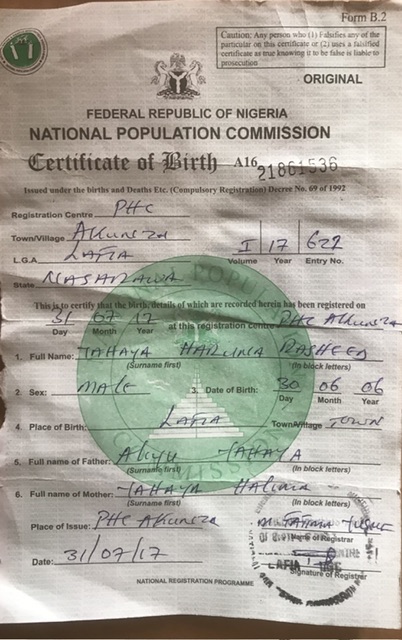 Form B.2
Caution: Any person who (1) Falsifies any of the
particular on this certificate or (2) uses a falsified
certificate as true knowing it to be false is liable to
prosecution
ORIGINAL
FEDERAL REPUBLIC OF NIGERIA
NATIONAL POPULATION COMMISSION
Certificate of Birth A16 21861536
Issued under the births and Deaths Etc. (Compulsory Registration) Decree No. 69 of 1992
Registration Centre PHC
Town/Village AKUNZA
L.G.A LAFIA
I 17 622
Volume Year Entry No.
State NASARAWA
This is to certify that the birth, details of which are recorded herein has been registered on
31 07 17 at this registration centre PHC AKUNZA
Day Month Year
1. Full Name: YAHAYA HARUNA RASHEED
(Surname first) (In block letters)
2. Sex: MALE 3. Date of Birth: 30 06 06
Day Month Year
4. Place of Birth: LAFIA Town/Village TOWN
5. Full name of Father: ALIYU YAHAYA
(Surname first) (In block letters)
6. Full name of Mother: YAHAYA HALIMA
(Surname first) (In block letters)
Place of Issue: PHC AKUNZA FATIMA YUSUF
Name of Registrar
Date: 31/07/17
LAFIA
Signature of Registrar
NATIONAL REGISTRATION PROGRAMME